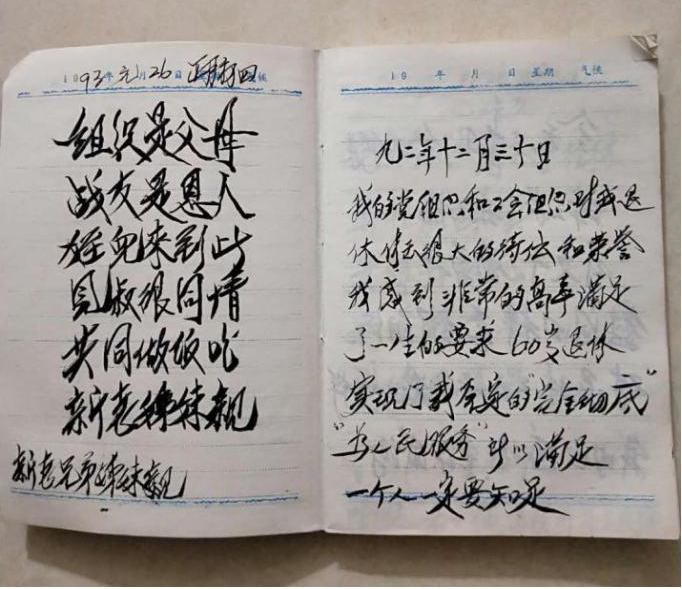 1993年元月26日 正月初四
组织是父母
战友是恩人
姪儿来到此
见叔很同情
共同做饭吃
新老姊妹親
新老兄弟姊妹親
19 年 月 日 星期 气候
九二年十二月三十日
我的党组织和工会组织对我退
休给了很大的待住和荣誉
我感到非常的高事满足
了一生的要求60岁退休
实现了我肯定的"完全彻底"
"为人民服务"所以满足
一个人一定要知足